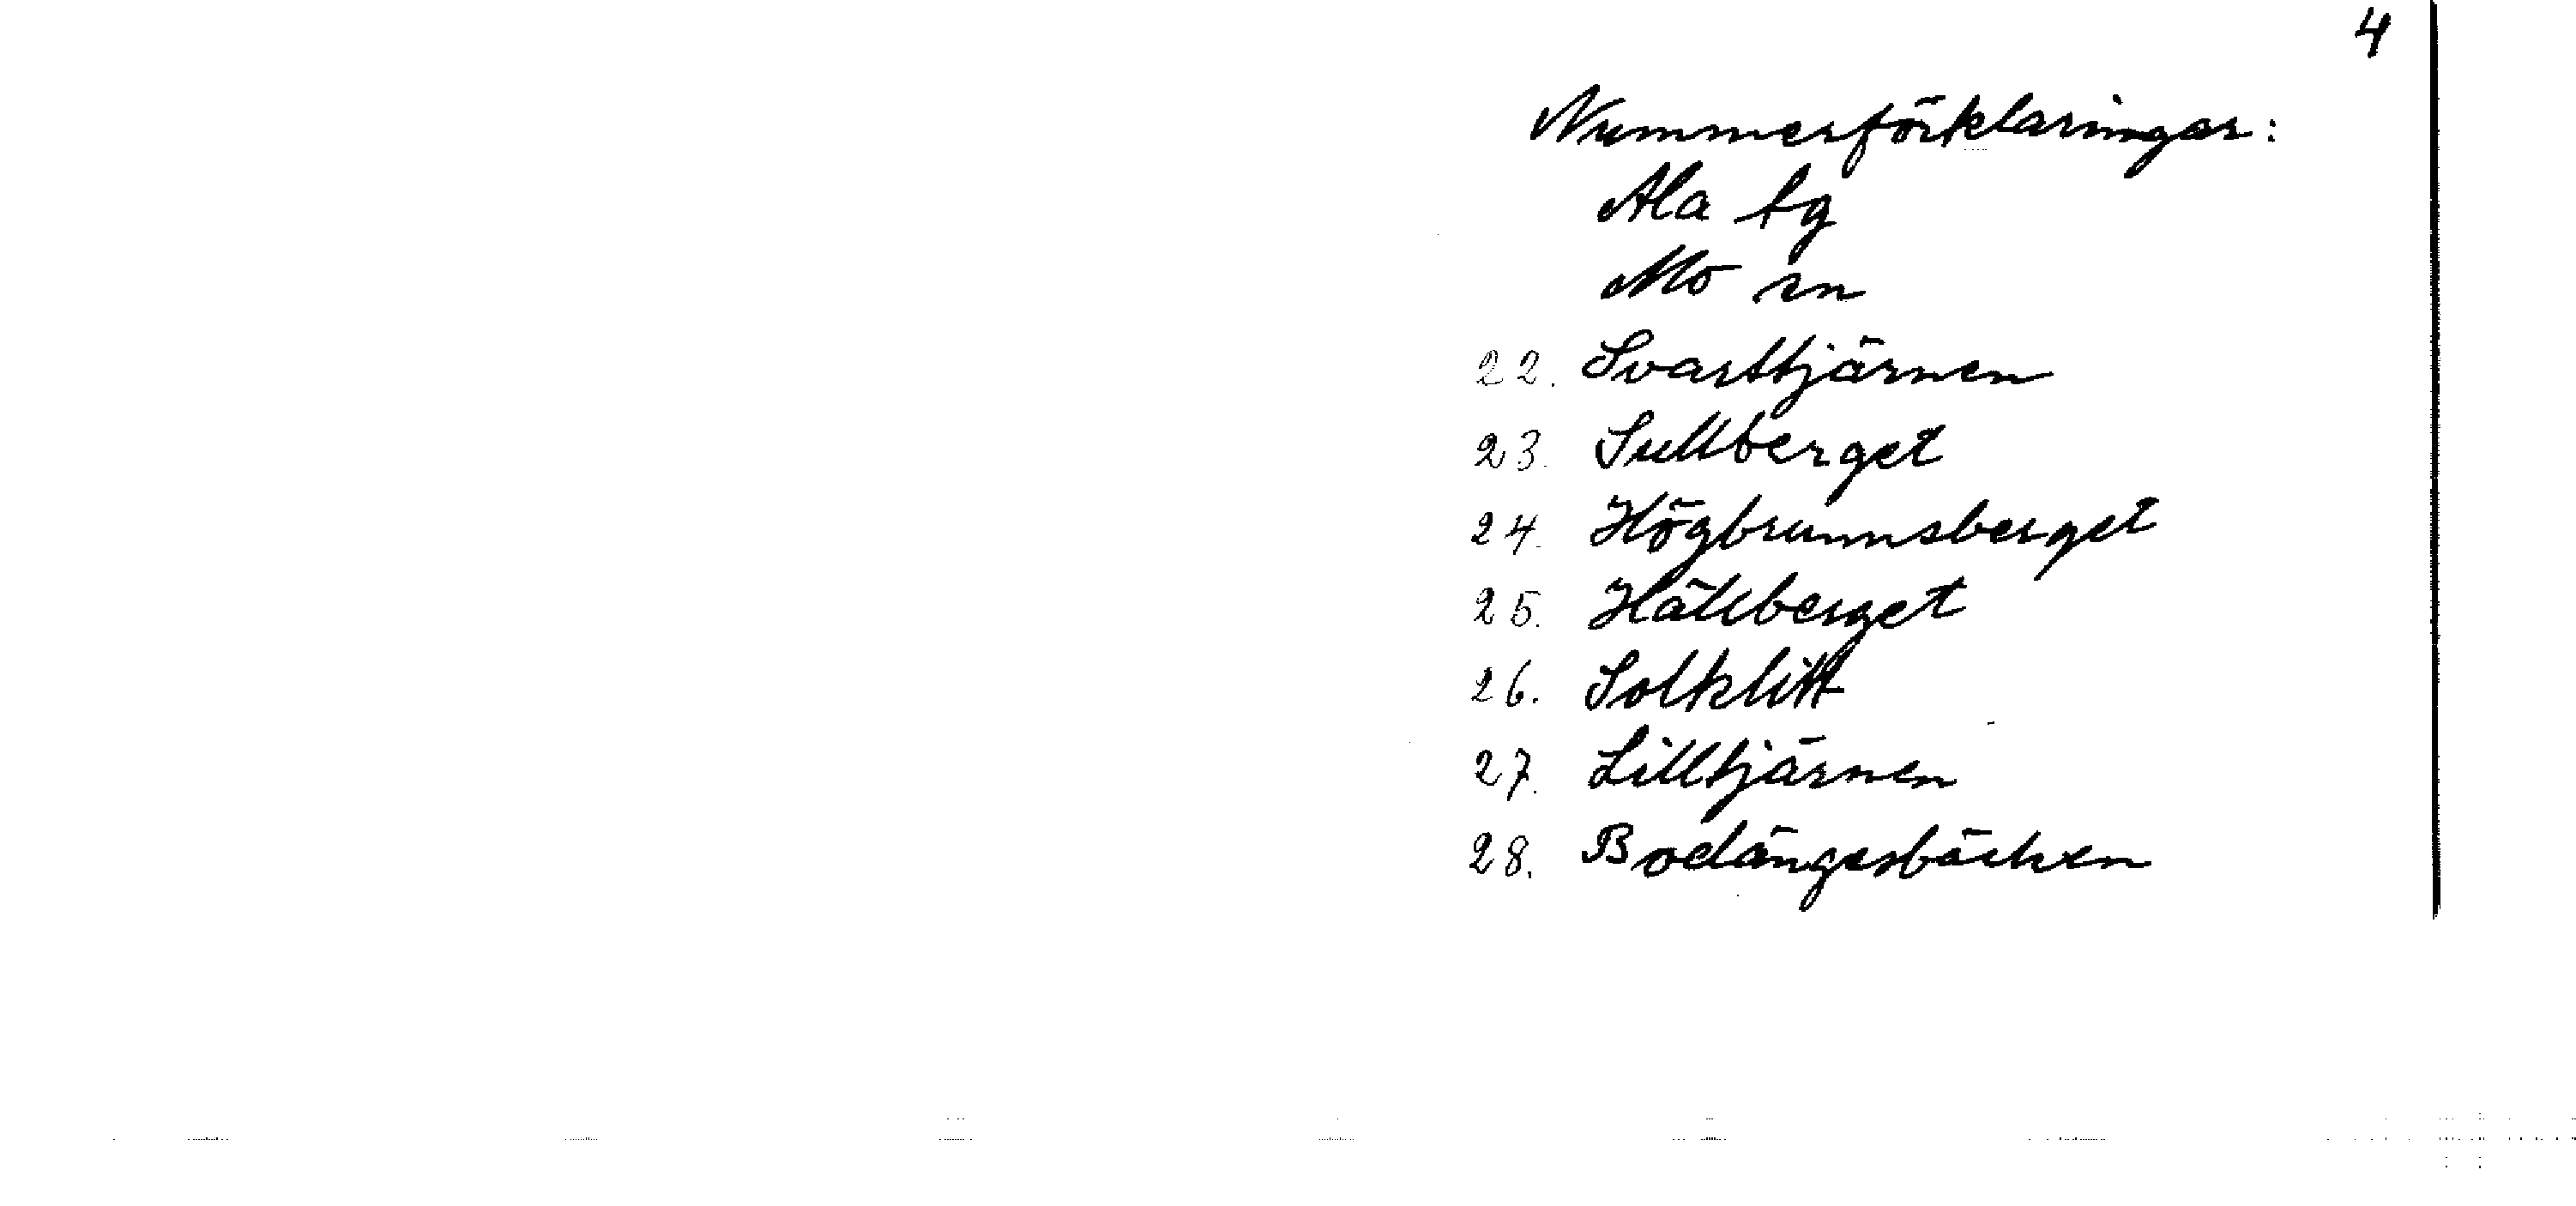 4
Nummerförklaringar:
Ala tg
Mo sn
22. Svarttjärnen
23. Sullberget
24. Högbrunnsberget
25. Hällberget
26. Solklitt
27. Lilltjärnen
28. Bodängesbäcken